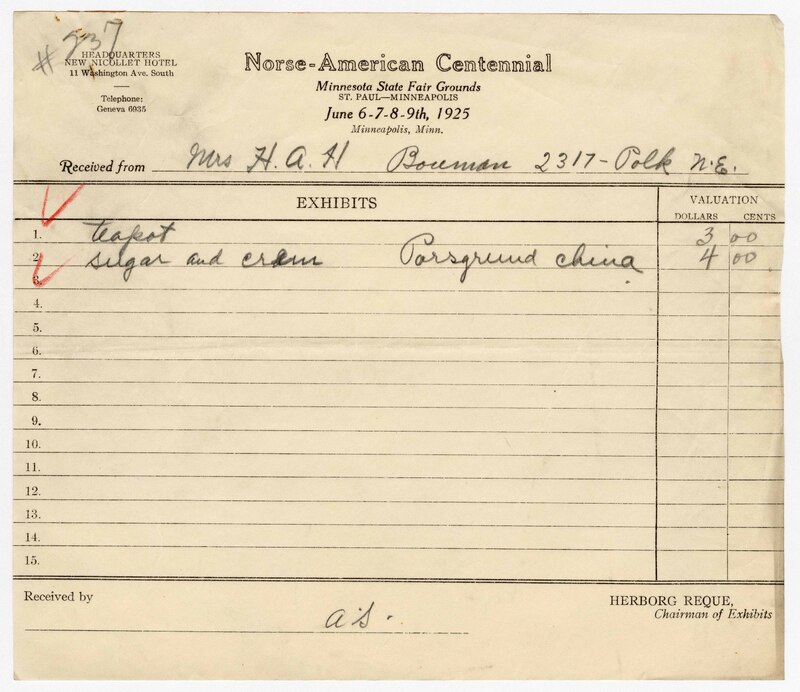 # 237
HEADQUARTERS
NEW NICOLLET HOTEL
11 Washington Ave. South
Telephone:
Geneva 6935
Norse-American Centennial
Minnesota State Fair Grounds
ST. PAUL—MINNEAPOLIS
June 6-7-8-9th, 1925
Minneapolis, Minn.
Received from Mrs H. A. H Bouman 2317- Polk N.E.
EXHIBITS
VALUATION
DOLLARS CENTS
1. teapot 3 00
2. sugar and cream Porsgrund china 4 00
3.
4.
5.
6.
7.
8.
9.
10.
11.
12.
13.
14.
15.
Received by
A.S.
HERBORG REQUE,
Chairman of Exhibits